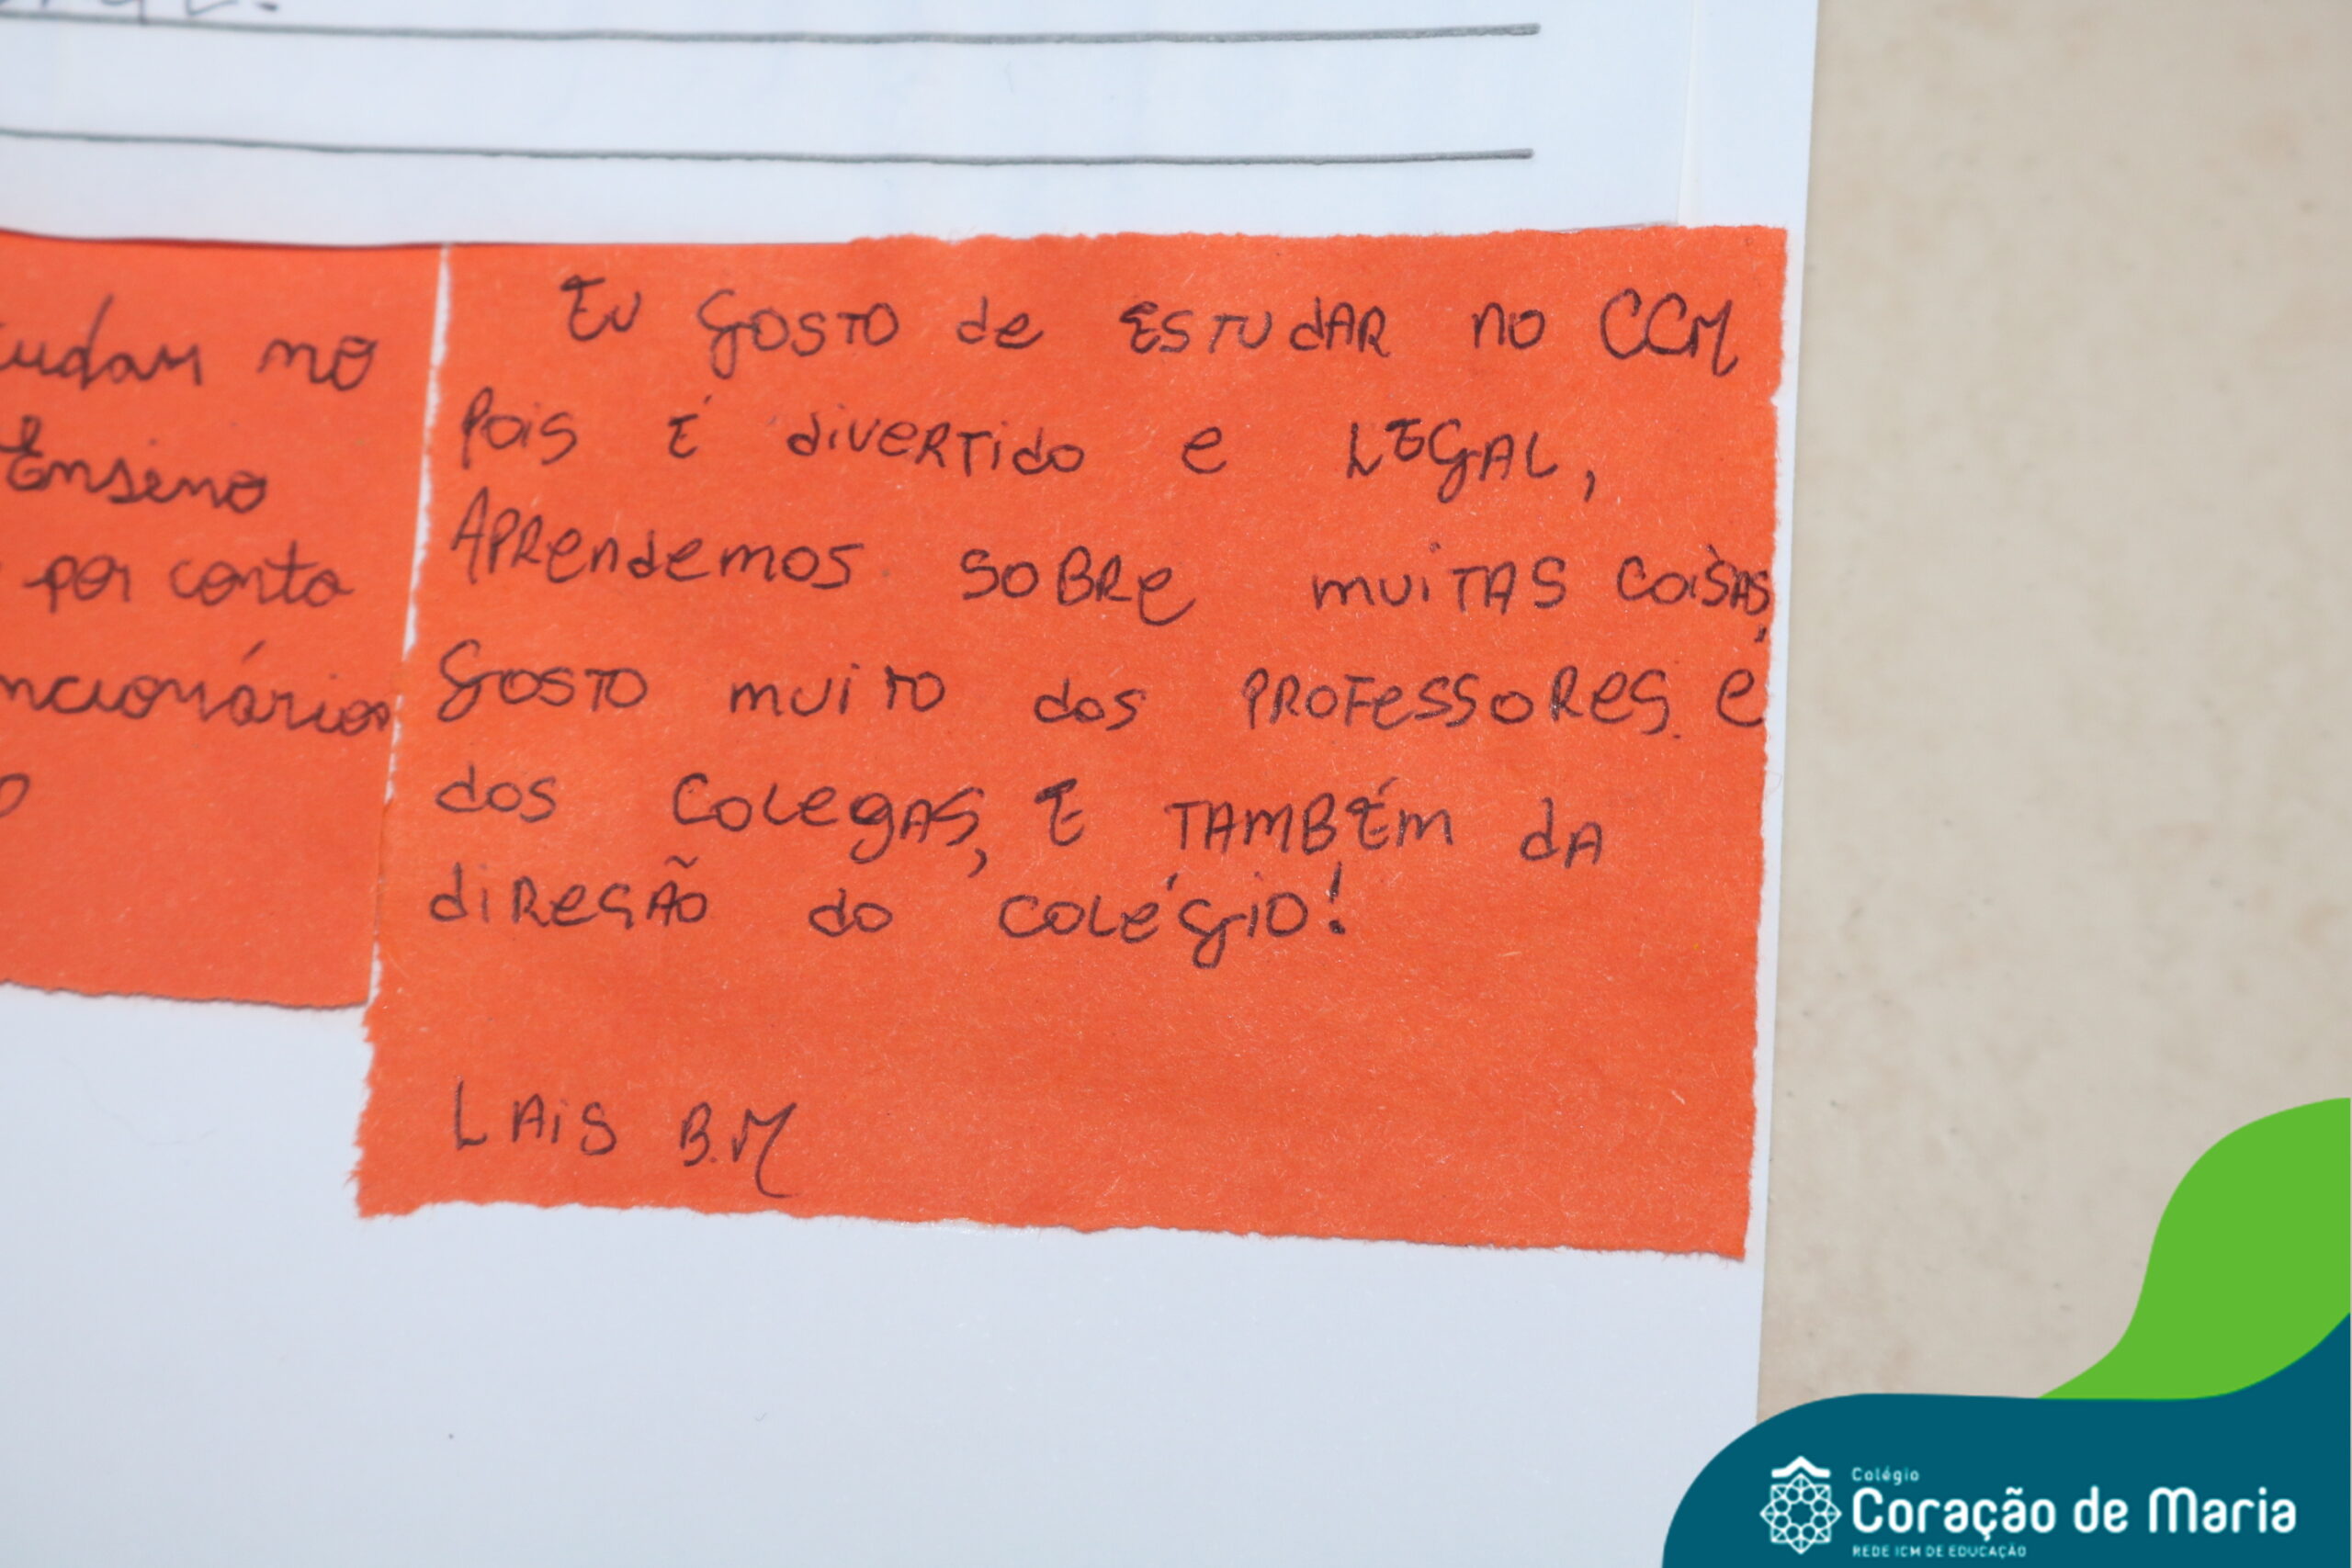 Eu gosto de estudar no CCM
pois é divertido e legal,
Aprendemos sobre muitas coisas,
gosto muito dos professores e
dos colegas, e também da
direção do colégio!
Lais B.M
no
Ensino
por conta
Colégio
Coração de Maria
REDE ICM DE EDUCAÇÃO